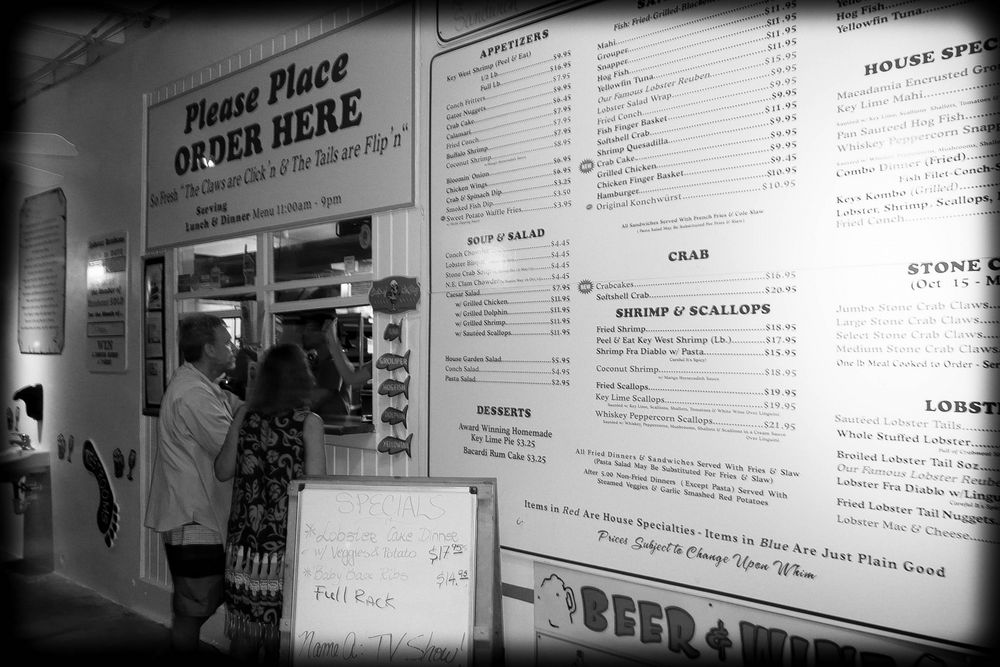 Please Place
ORDER HERE
So Fresh "The Claws are Click'n & The Tails are Flip'n"
Serving
Lunch & Dinner Menu 11:00am - 9pm
WIN
GROUPER
HOGFISH
YELLOWTAIL
SPECIALS
*Lobster Cake Dinner
w/ Veggies & Potato $17.95
*Baby Back Ribs $14.95
Full Rack
Name A: TV Show!
APPETIZERS
Key West Shrimp (Peel & Eat)
1/2 Lb. $9.95
Full Lb. $16.95
Conch Fritters $7.95
Gator Nuggets $6.45
Crab Cake $7.95
Calamari $7.95
Fried Conch $7.95
Buffalo Shrimp $7.95
Coconut Shrimp $8.95
Bloomin Onion $6.95
Chicken Wings $6.95
Crab & Spinach Dip $3.25
Smoked Fish Dip $3.50
Sweet Potato Waffle Fries $3.95
SOUP & SALAD
Conch Chowder $4.45
Lobster $4.45
Stone Crab $4.45
N.E. Clam Chowder $4.45
Caesar Salad $7.95
w/ Grilled Chicken $11.95
w/ Grilled Dolphin $11.95
w/ Grilled Shrimp $11.95
w/ Sautéed Scallops $11.95
House Garden Salad $5.95
Conch Salad $4.95
Pasta Salad $2.95
DESSERTS
Award Winning Homemade
Key Lime Pie $3.25
Bacardi Rum Cake $3.25
Sandwich
Fish: Fried-Grilled-Blackened
$11.95
Mahi $11.95
Grouper $11.95
Snapper $11.95
Hog Fish
Yellowfin Tuna $15.95
Our Famous Lobster Reuben $9.95
Lobster Salad Wrap $9.95
Fried Conch
Fish Finger Basket $11.95
Softshell Crab $9.95
Shrimp Quesadilla $9.95
NEW Crab Cake $9.95
Grilled Chicken $9.45
Chicken Finger Basket $10.95
Hamburger $10.95
Original Konchwürst
All Sandwiches Served With French Fries & Cole Slaw
(Pasta Salad May Be Substituted For Fries & Slaw)
CRAB
NEW Crabcakes $16.95
Softshell Crab $20.95
SHRIMP & SCALLOPS
Fried Shrimp $18.95
Peel & Eat Key West Shrimp (Lb.) $17.95
Shrimp Fra Diablo w/ Pasta $15.95
Careful It's Spicy!
Coconut Shrimp $18.95
w/ Mango Horseradish Sauce
Fried Scallops $19.95
Key Lime Scallops $19.95
Sauteed w/ Key Lime, Scallions, Shallots, Tomatoes & White Wine Over Linguini
Whiskey Peppercorn Scallops $21.95
Sauteed w/ Whiskey, Peppercorns, Mushrooms, Shallots & Scallions in a Cream Sauce
Over Linguini
All Fried Dinners & Sandwiches Served With Fries & Slaw
(Pasta Salad May Be Substituted For Fries & Slaw)
After 5:00 Non-Fried Dinners (Except Pasta) Served With
Steamed Veggies & Garlic Smashed Red Potatoes
Items in Red Are House Specialties - Items in Blue Are Just Plain Good
Prices Subject to Change Upon Whim
Hog Fish
Yellowfin Tuna
HOUSE SPEC
Macadamia Encrusted Gro
Key Lime Mahi
Pan Sauteed Hog Fish
Whiskey Peppercorn Snapp
Combo Dinner (Fried)
Fish Filet-Conch-S
Keys Kombo (Grilled)
Lobster, Shrimp, Scallops,
Fried Conch
STONE C
(Oct 15 - M
Jumbo Stone Crab Claws
Large Stone Crab Claws
Select Stone Crab Claws
Medium Stone Crab Claws
One lb Meal Cooked to Order - Ser
LOBST
Sautéed Lobster Tails
Whole Stuffed Lobster
Full of Crabmeat
Broiled Lobster Tail 8oz
Our Famous Lobster Reube
Lobster Fra Diablo w/Lingu
Careful It's
Fried Lobster Tail Nuggets
Lobster Mac & Cheese
BEER & WINE